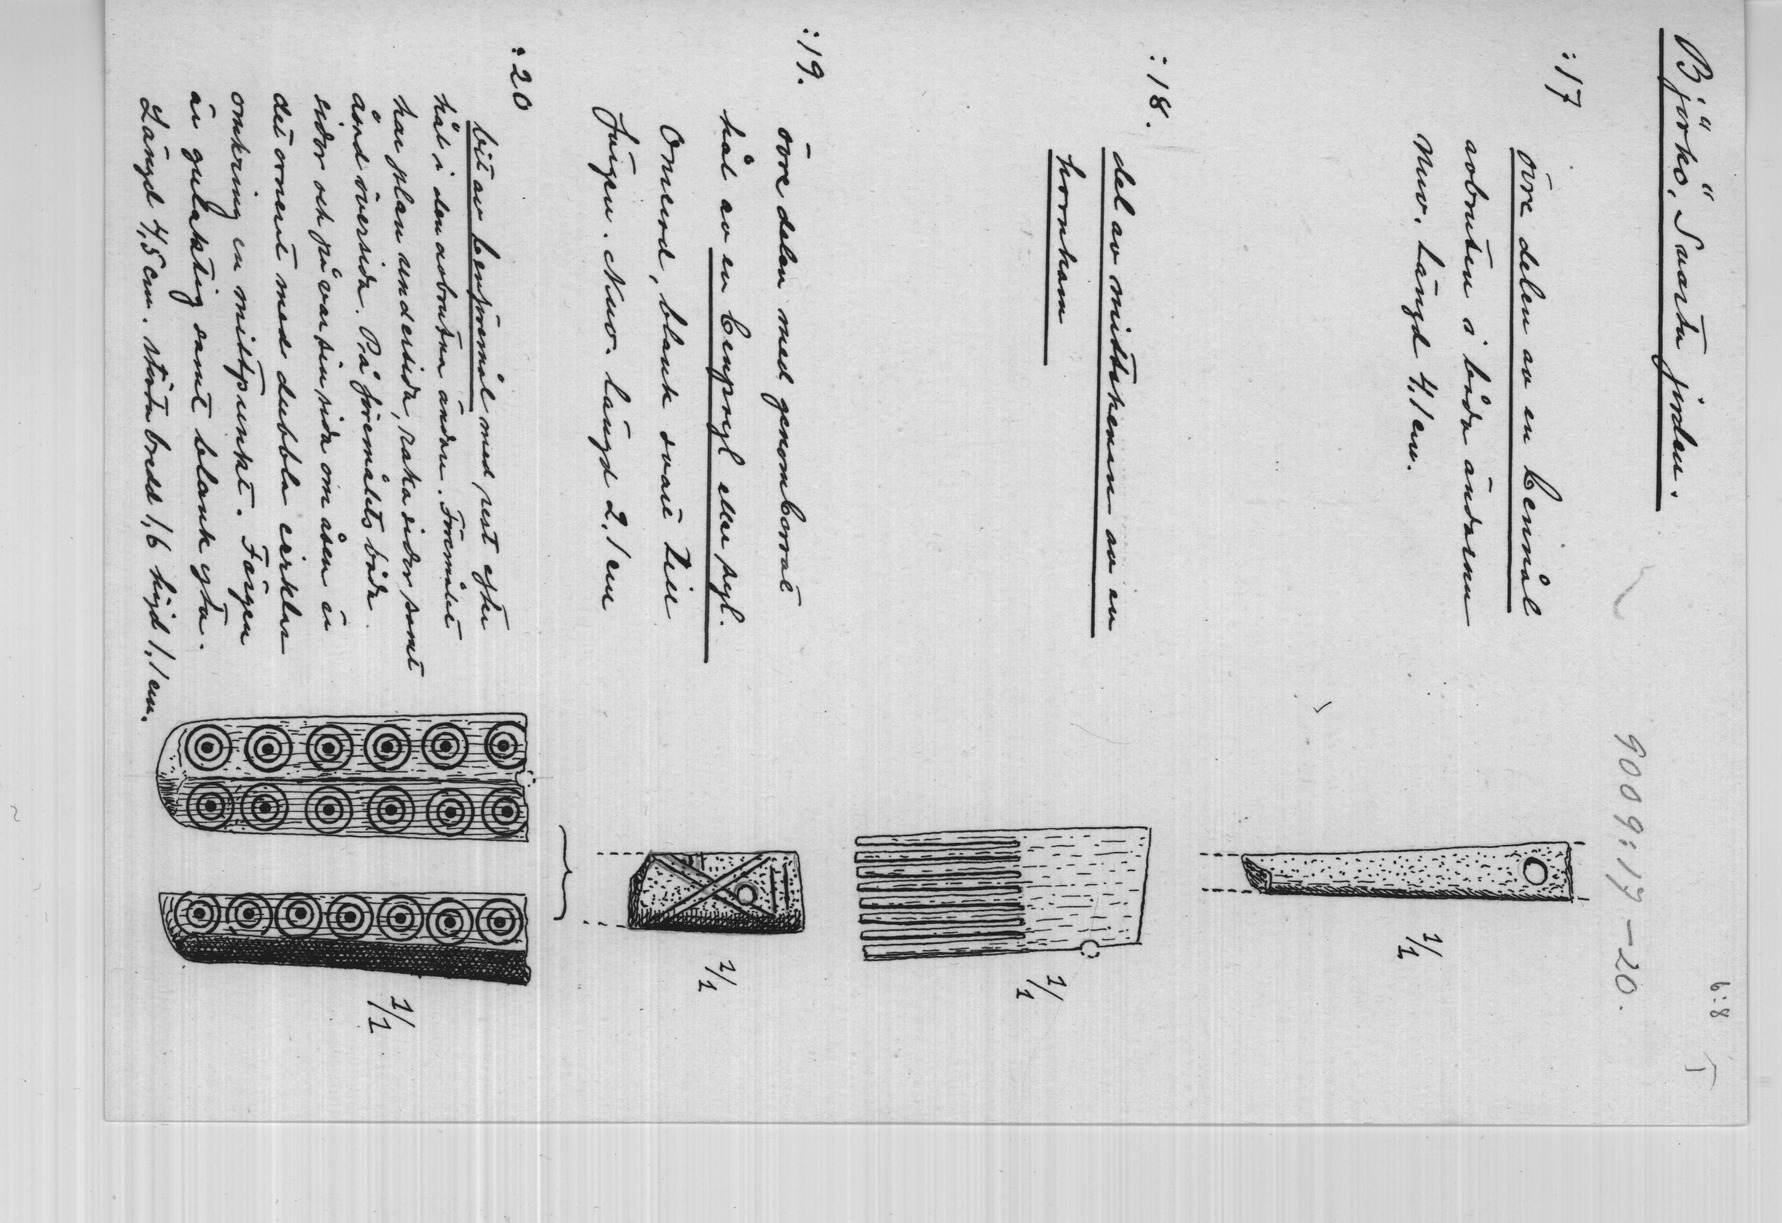 6:8
Björkö, Svarta jorden.
9009:17-20.
:17
övre delen av en bennål
avbruten i båda ändarna
Nuv. längd 4,1 cm.
1/1
:18.
del av mittskenan av en
hornkam
1/1
:19.
övre delen med genomborrat
hål av en benpryl eller syl.
Ornerad, blank svart till
färgen. Nuv. längd 2,1 cm
1/1
:20
bit av benföremål med rest efter
hål i den avbrutna ändan. Föremålet
har plan undersida, raka sidor samt
åsad översida. På föremålets båda
sidor och på var sin sida om åsen är
det ornerat med dubbla cirklar
omkring en mittpunkt. Färgen
är gulaktig samt blank yta.
Längd 4,5 cm. största bredd 1,6 höjd 1,1 cm.
1/1